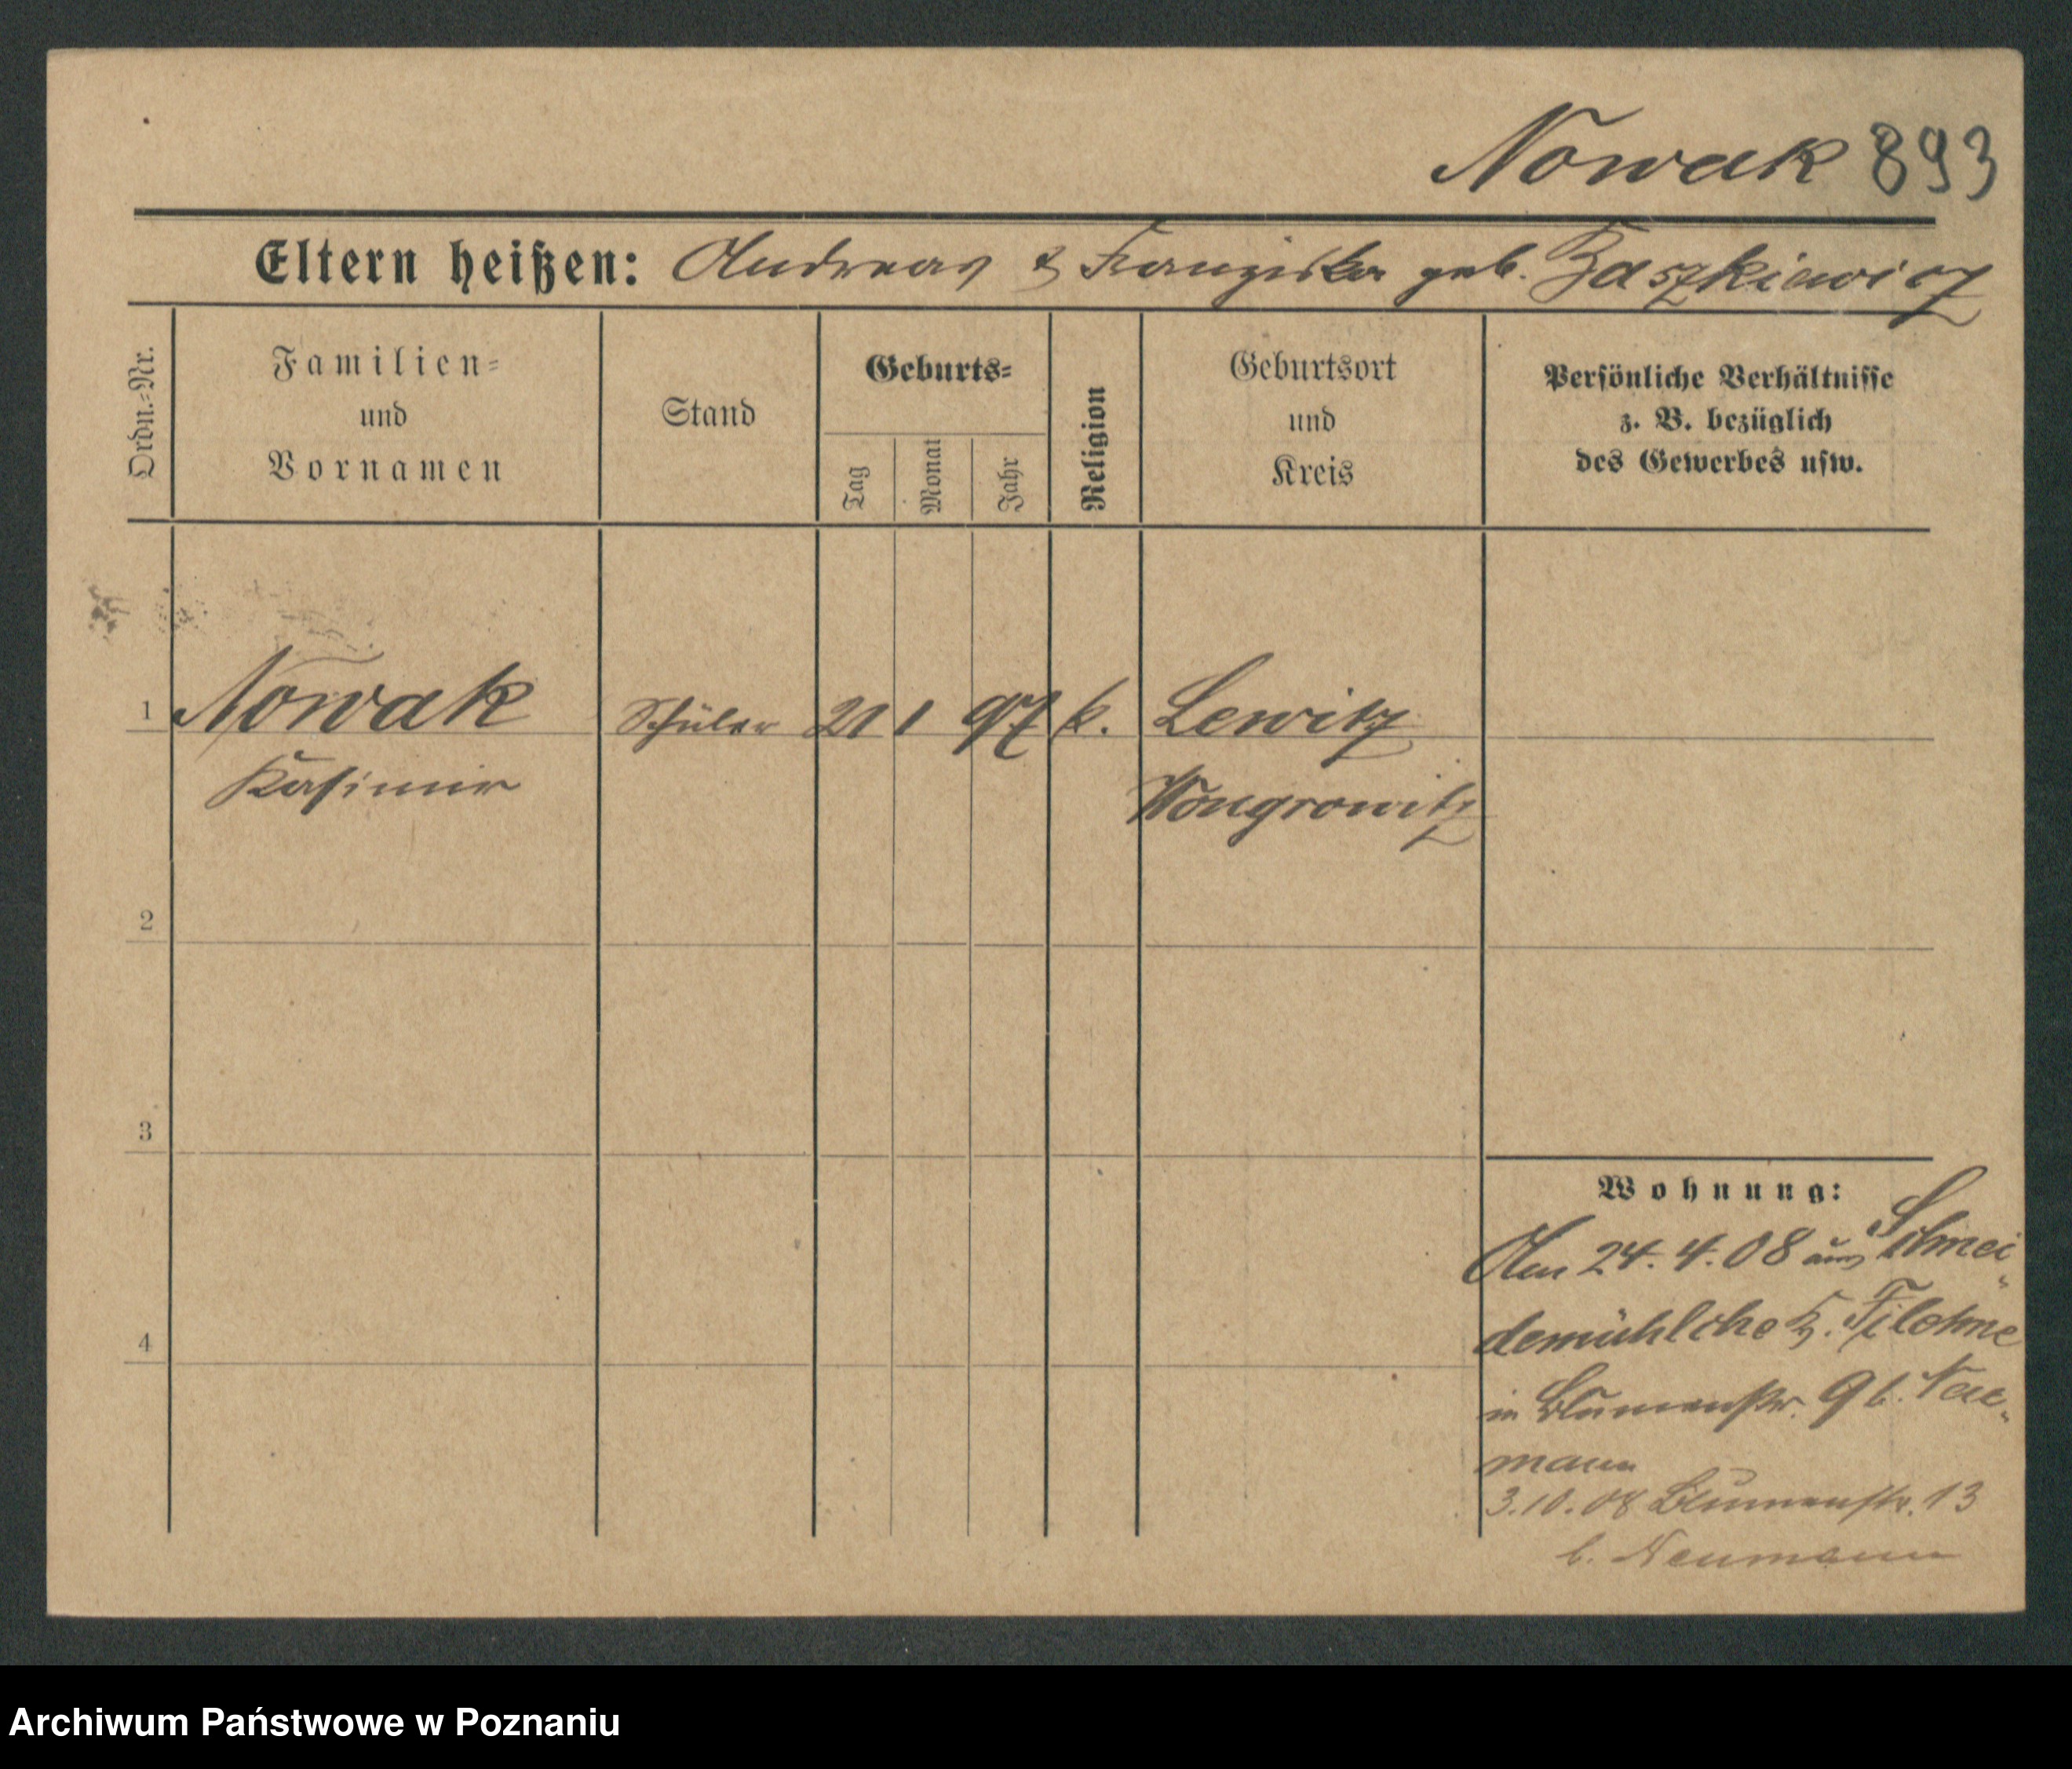 Nowak 893
Eltern heißen: Andreas & Franziska geb. Zaszkiewicz
Ordn.-Nr.
Familien-
und
Vornamen
Stand
Geburts-
Tag
Monat
Jahr
Religion
Geburtsort
und
Kreis
Persönliche Verhältnisse
z. B. bezüglich
des Gewerbes usw.
1 Nowak Schüler 21 1 97 k. Lewitz
Kasimir Wongrowitz
2
3
Wohnung:
Am 24. 4. 08 aus Schnei
demühlche K. Filehne
4
in Blumenstr. 9 b. Neu-
mann
3.10.08 Blumenstr. 13
b. Neumann
Archiwum Państwowe w Poznaniu